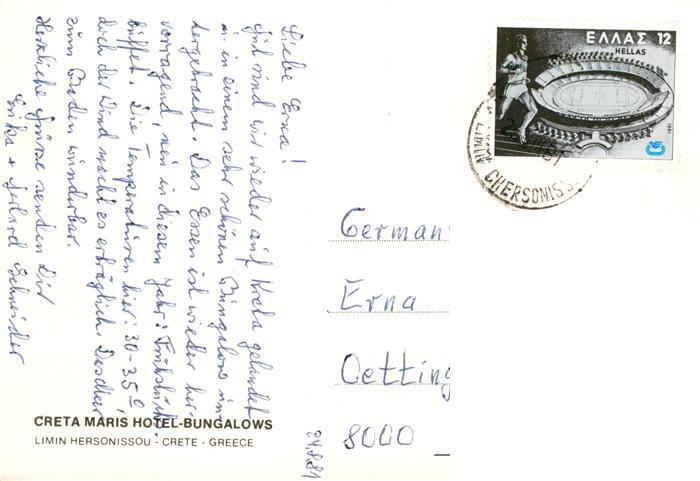 Liebe Erna!
Gut sind wir wieder auf Kreta gelandet
u. in einem sehr schönen Bungalow un-
tergebracht. Das Essen ist wieder her-
vorragend, neu in diesem Jahr: Frühstücks-
büffet. Die Temperaturen hier: 30-35°
doch der Wind macht es erträglich. Das Meer
zum Baden wunderbar.
Herzliche Grüsse senden Dir
Erika + Gerhard Schneider
CRETA MARIS HOTEL-BUNGALOWS
LIMIN HERSONISSOU - CRETE - GREECE
24.8.81
ΕΛΛΑΣ 12
HELLAS
1981
LIMIN CHERSONISS
German
Erna
Oetting
8000